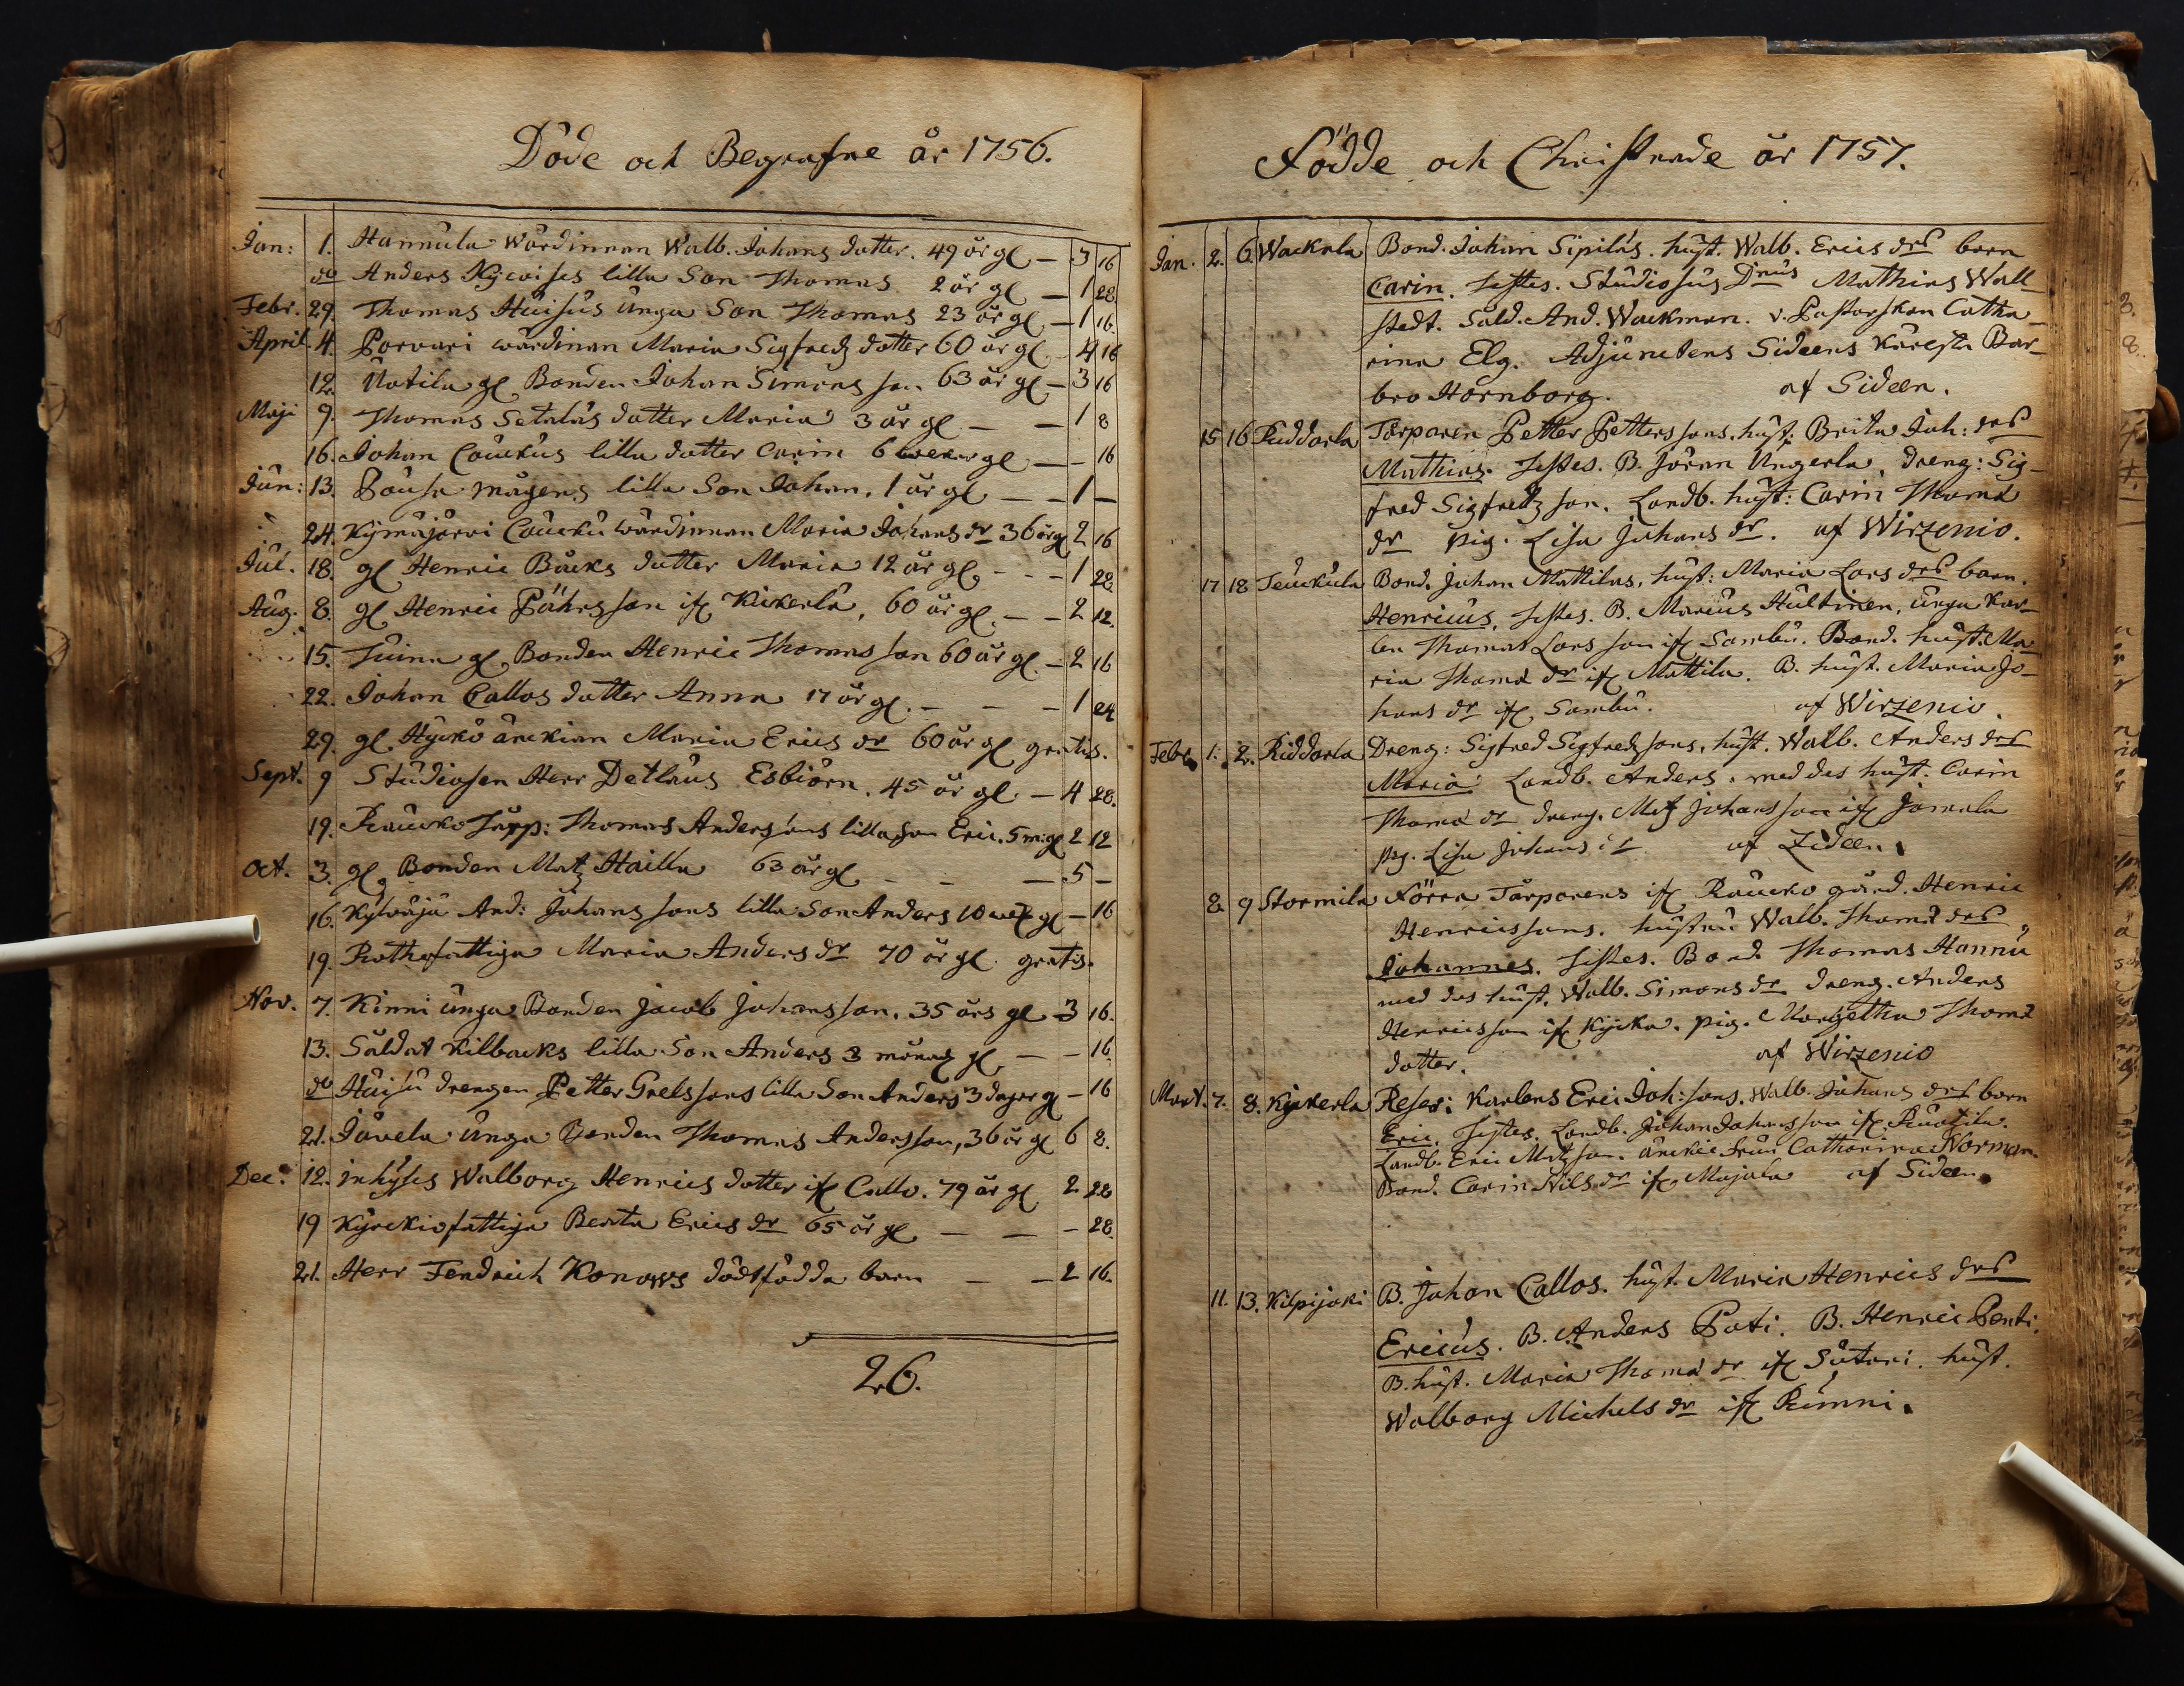 Döde och Begrafne år 1756.
Jan: 1. Hannula Wärdinnan Walb. Johans dotter. 49 år gl — 3 16
do Anders lilla Son Thomas 2 år gl — 1 28
Febr. 29. Thomas Huisus unga Son Thomas 23 år gl — 1 16.
April. 4. Porvari wärdinnan Maria Sigfredz dotter 60 år gl — 4 16
12. gl Bonden Johan Simons son 63 år gl — 3 16
Maji 9. Thomas Setalas dotter Maria 3 år gl — — 1 8
16. Johan Couckus lilla dotter Carin 6 weckor gl — — 16
Jun: 13. Pousa mågens lilla Son Johan. 1 år gl — — 1 —
24. Kÿmäjärvi Coucku wärdinnan Maria Johans dr 36 år gl 2 16
Jul. 18. gl Henric Bäcks dotter Maria 12 år gl - - - 1 28.
Aug. 8. gl Henric Påhrsson if Kickerlä, 60 år gl. — — 2 12.
15. gl Bonden Henric Thomas son 60 år gl. — 2 16
22. Johan Callos dotter Anna 17 år gl. — — — 1 24
29. gl Hÿckö änckian Maria Erics dr 60 år gl gratis.
Sept. 9 Studiosen Herr Detlaus Esbiörn. 45 år gl — 4 28.
19. Raucko Thomas Anderssons lilla son Eric. 5 m: gl 2 12
Oct. 3. gl Bonden Matz Hailla 63 år gl — — — 5 —
16. And: Johans sons lilla Son Anders 10 we: gl — 16
19. Rothefattiga Maria Anders dr 70 år gl. gratis.
Nov. 7. Kinni unga Bonden Jacob Johansson. 35 års gl — 3 16.
13. Soldat Kilbacks lilla Son Anders 3 månad gl — — 16.
do Huisu drengen Petter Grelssons lilla Son Anders 3 dagar gl — 16
21. Jåvela unga Bonden Thomas Andersson, 36 år gl 6 8.
Dec: 12. inhÿses Walborg Henrics dotter if Callo. 79 år gl 2 28
19 Kÿrckiofattiga Beata Erics dr 65 år gl — — — 28.
21. Herr Fendrich Konows dödfödda barn — — 2 16.
26.
Födde och Christnade år 1757.
Jan. 2. 6. Wackola Bond. Johan Sipiläs. hust. Walb. Erics drs barn
Carin. Testes. Studiosus Dnus Mathias Wall
stedt. Sold. And. Wackman. v. Pastorskan Catha-
rina Elg. Adjunctens Sideens käresta Bar-
bro Hornborg. af Sideen.
15 16 Ruddarla Torparen Petter Petterssons, hust. Brita Joh: drs
Mathias. Testes. B. Jöran Ungerla, dreng: Sig-
fred Sigfredz son. Landb. hust: Carin Thomæ
dr pig. Lisa Johans dr. af Wirzenio.
17 18 Teuckula Bond. Johan Mattilas, hust: Maria Lars drs barn.
Henricus. Testes. B. Marcus Hultinen, unga Kar-
len Thomas Lars son if Sambu. Bond. hust. Ma-
ria Thomæ dr if Mattila. B. hust. Maria Jo-
hans dr if Sambu. af Wirzenio.
Febr. 1. 2. Ruddarla Dreng: Sigfred Sigfredz sons, hust. Walb. Anders drs
Maria Landb. Anders. med des hust. Carin
Thomæ dr dreng. Matz Johansson if Jamala
pig. Lisa Johans dr af Zideen.
8 9 Stormila Förra Torparens if Raucko gård. Henric
Henricssons. hustru Walb. Thomæ drs
Johannes. Testes. Bond. Thomas Hannu
med des hust. Walb. Simons dr dreng. Anders
Henricsson if Kÿcka. pig. Margetha Thomæ
dotter. af Wirzenio
Mart. 7. 8. Kÿckerla Reser: Karlens Eric Joh: sons. Walb. Johans drs barn
Eric. Testes. Landb. Johan Johansson if
Landb. Eric Matzson. änckie frun Catharina Norman.
Bond. Carin Nils dr if Majala af Sideen.
11. 13. Kilpijoki B. Johan Callos. hust. Maria Henrics drs
Ericus. B. Anders Pati. B. Henric Penti.
B. hust. Maria Thomæ dr if Såtari. hust.
Walborg Michels dr if Kinni.